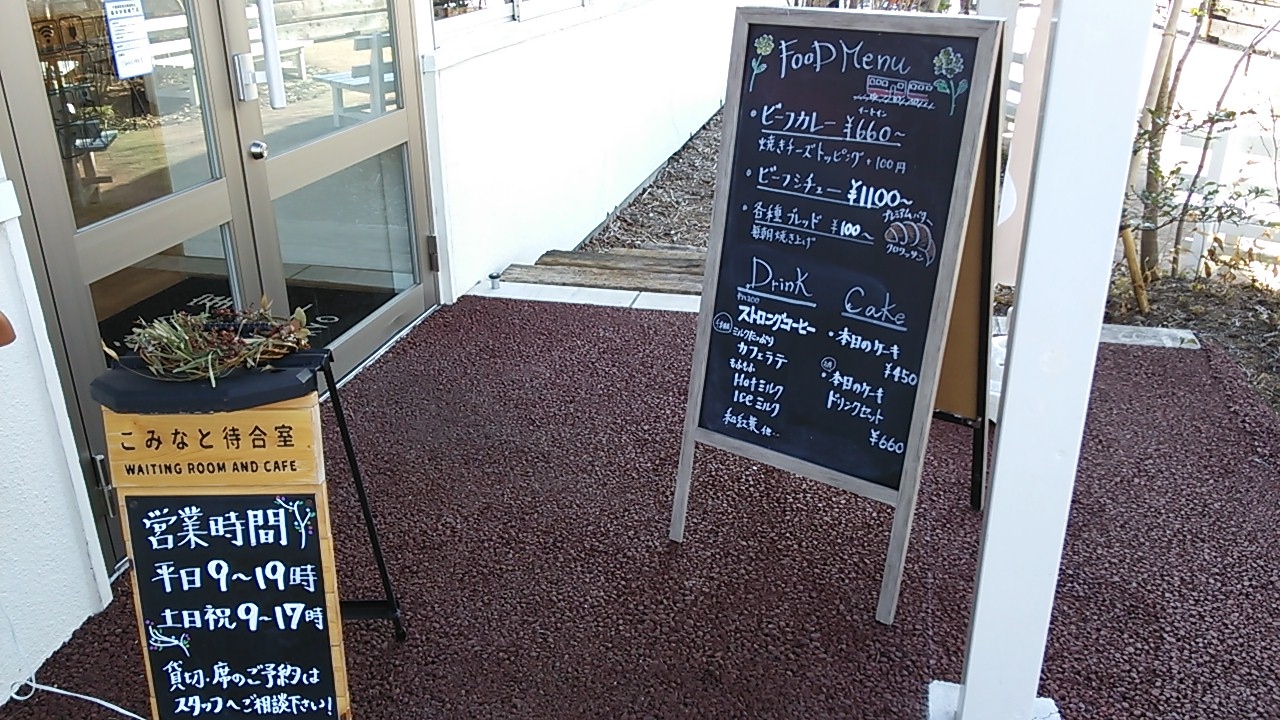 こみなと待合室
WAITING ROOM AND CAFE
営業時間
平日9〜19時
土日祝9〜17時
貸切・席のご予約は
スタッフへご相談下さい!
FooD Menu
イートイン
・ビーフカレー ¥660〜
焼きチーズトッピング +100円
・ビーフシチュー ¥1100〜
・各種ブレッド ¥100〜
毎朝焼き上げ
プレミアムバター
クロワッサン
Drink
ストロングコーヒー
ミルクたっぷり
カフェラテ
もふもふ
Hotミルク
Iceミルク
和紅茶 他..
Cake
・本日のケーキ
¥450
・本日のケーキ
ドリンクセット
¥660